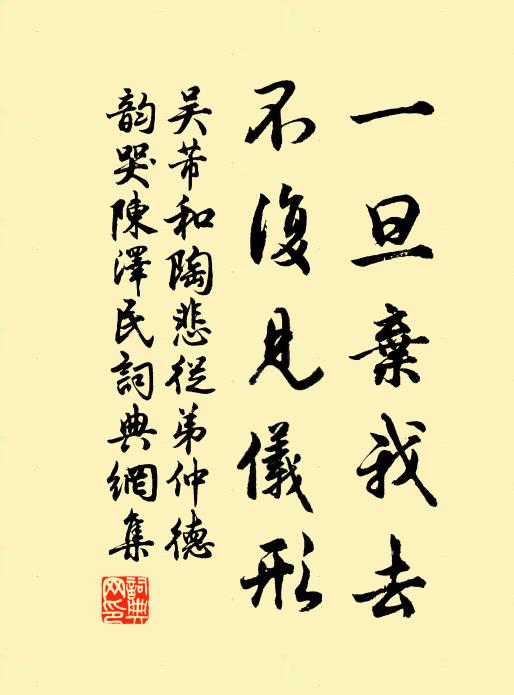 一旦棄我去
不復見儀形
吳芾和陶悲從弟仲德
韵哭陳澤民詞典網集
詞典网印